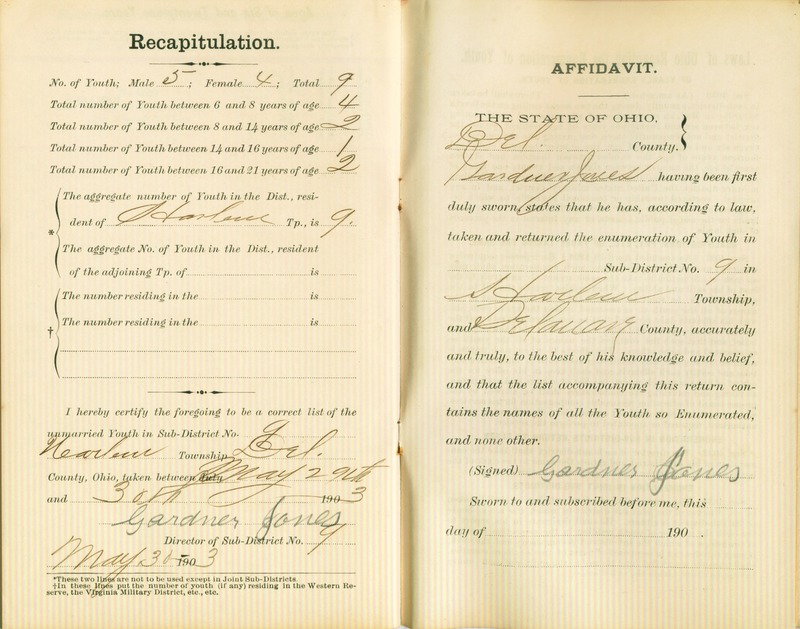 Recapitulation.
No. of Youth; Male 5; Female 4; Total 9
Total number of Youth between 6 and 8 years of age 4
Total number of Youth between 8 and 14 years of age 2
Total number of Youth between 14 and 16 years of age 1
Total number of Youth between 16 and 21 years of age 2
The aggregate number of Youth in the Dist., resi-
* dent of Harlem Tp., is 9.
The aggregate No. of Youth in the Dist., resident
of the adjoining Tp. of is
The number residing in the is
† The number residing in the is
I hereby certify the foregoing to be a correct list of the
unmarried Youth in Sub-District No. 9
Harlem Township, Del.
County, Ohio, taken between May 29th
and 30th 1903
Gardner Jones
Director of Sub-District No. 9
May 30 1903
*These two lines are not to be used except in Joint Sub-Districts.
†In these lines put the number of youth (if any) residing in the Western Re-
serve, the Virginia Military District, etc., etc.
AFFIDAVIT.
THE STATE OF OHIO,
Del. County.
Gardner Jones having been first
duly sworn, states that he has, according to law,
taken and returned the enumeration of Youth in
Sub-District No. 9 in
Harlem Township,
and Delaware County, accurately
and truly, to the best of his knowledge and belief,
and that the list accompanying this return con-
tains the names of all the Youth so Enumerated,
and none other.
(Signed) Gardner Jones
Sworn to and subscribed before me, this
day of 190 .